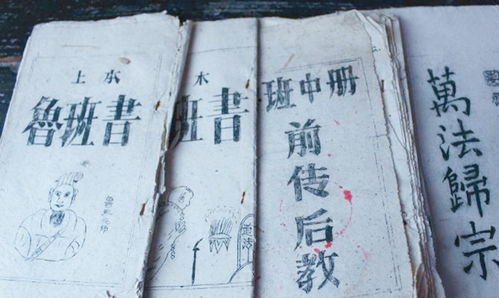 上本
魯班書
木
班書
班中册
前传后教
萬法歸宗